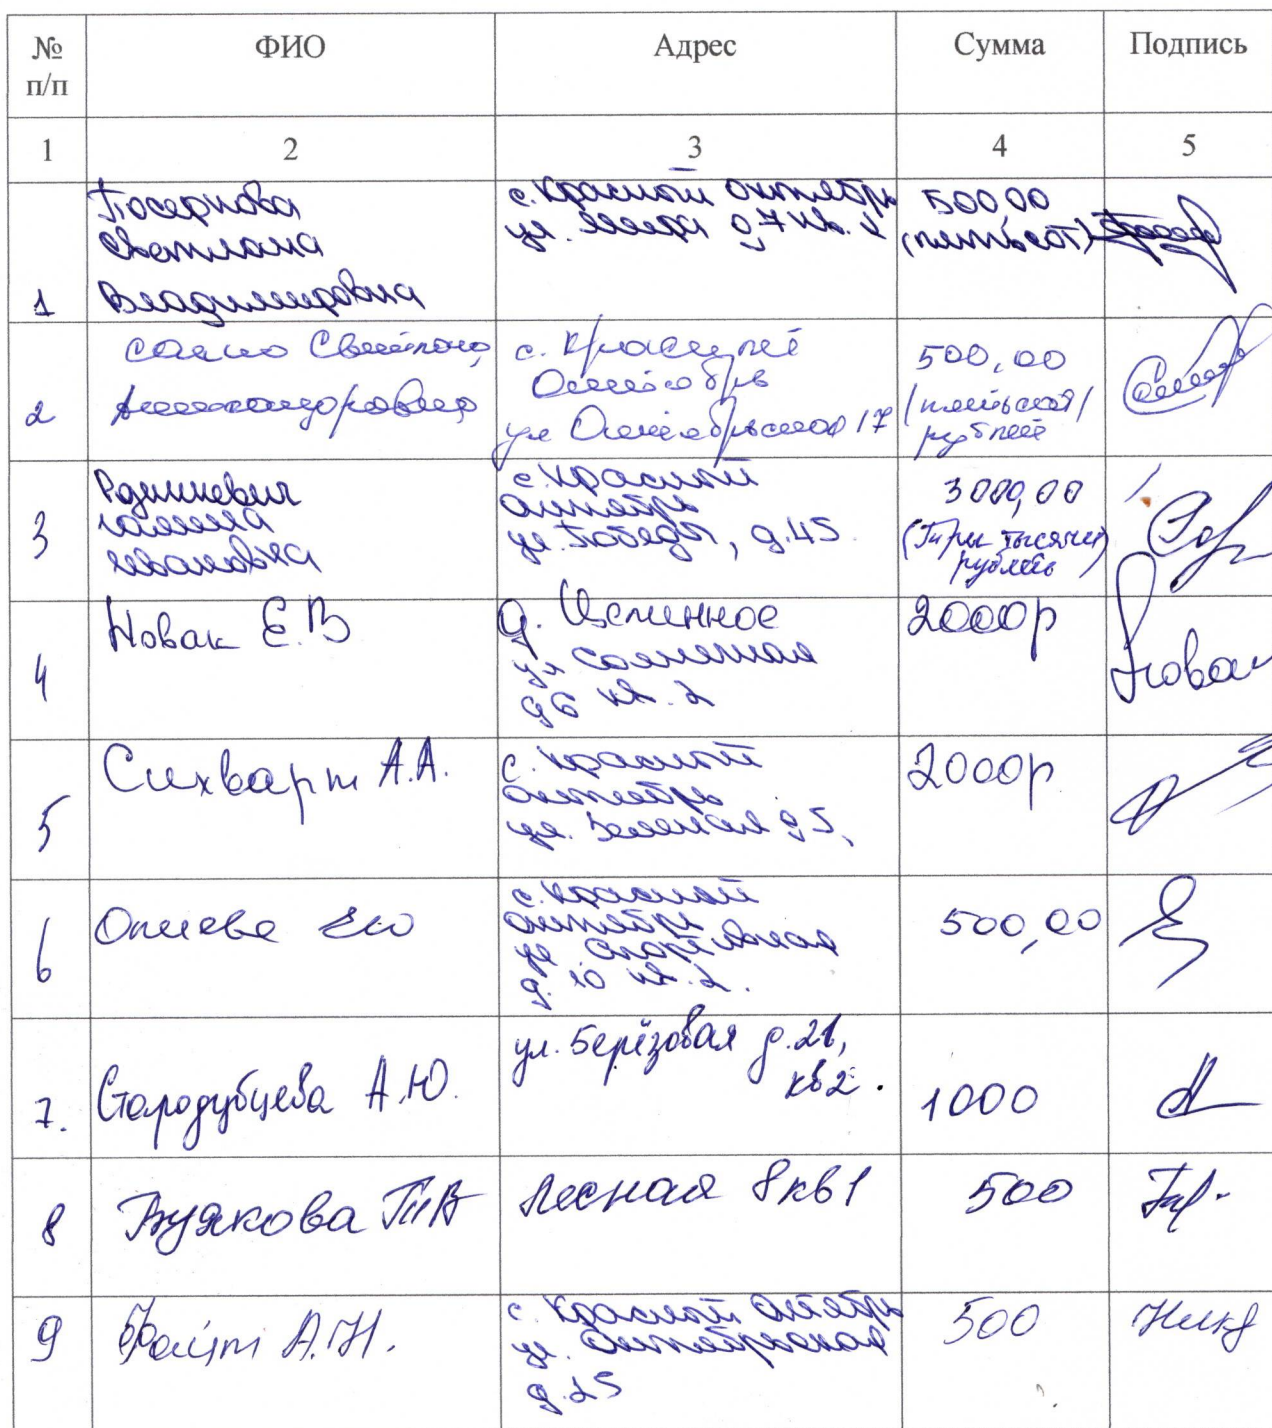 № п/п
ФИО
Адрес
Сумма
Подпись
1
2
3
4
5
1
Светлана
Владимировна
с. Красный Октябрь
ул. д. 7 кв. 2
500,00
(пятьсот)
2
Александровна
с. Красный
Октябрь
ул Октябрьская 17
500,00
/пятьсот/
рублей
3
Галина
Ивановна
с. Красный
Октябрь
ул. Победы, д. 45.
3000,00
(Три тысячи
рублей)
4
Новак Е.В
ул Солнечная
д 6 кв. 2
2000р
Новак
5
Сихварт А.А.
с. Красный
Октябрь
ул. Зеленая д 5,
2000р
6
с. Красный
Октябрь
ул
д. 10 кв. 2.
500,00
7.
Стародубцева А.Ю.
ул. Берёзовая д. 21,
кв 2.
1000
8
Лесная 8 кв 1
500
9
А.Н.
с. Красный Октябрь
ул. Октябрьская
д. 25
500